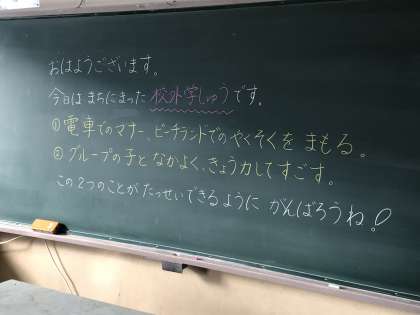 おはようございます。
今日は まちにまった 校外学しゅうです。
①電車でのマナー、ビーチランドでのやくそくを まもる。
②グループの子となかよく、きょう力してすごす。
この2つのことが たっせいできるように がんばろうね!